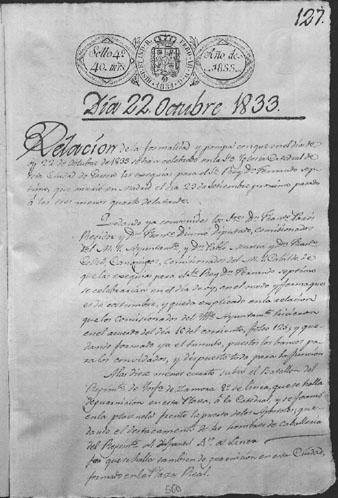 127.
Sello 4º
40. mrs.
Año de
1833.
Día 22. Octubre 1833.
Relacion de la formalidad y pompa con que en el dia de
oy 22 de Octubre de 1833 se han celebrado en la Sta Iglesia Catedral de
esta Ciudad de las exequias para el Sr Rey Dn Fernando sep-
timo, que murió en Madrid el dia 29 de Setiembre proximo pasado
à las tres menos quarto de la tarde.
Quedando ya convenidos los Sres Dn Franco
Regidor y Dn Diputado, comisionados
del M. Y. Ayuntamto y Dn Pablo y Dn
Canonigos, Comisionados del M. Y. Cabildo de
que las exequias para el Sr Rey Dn Fernando septimo
se celebrarian en el dia de oy, en el modo y forma que
es de costumbre, y queda explicado en la relacion
que los Comisionados del Ayuntamto hicieron
en el acuerdo del dia 18 del corriente, folio 125, y que-
dando formado ya el tumulo, puestos los bancos pa-
ra los convidados, y dispuesto todo para la funcion
A las diez menos cuarto subió el Batallon del
Regimto de Infa de Zamora 8º de linea, que se halla
de guarnicion en esta Plaza, à la Catedral, y se formó
en la plazuela frente la puerta de los Apostoles, que-
dando el destacamento de hombres de caballeria
del Regimto de linea
que se halla tambien de guarnicion en esta Ciudad,
formado en la Plaza Real.
560